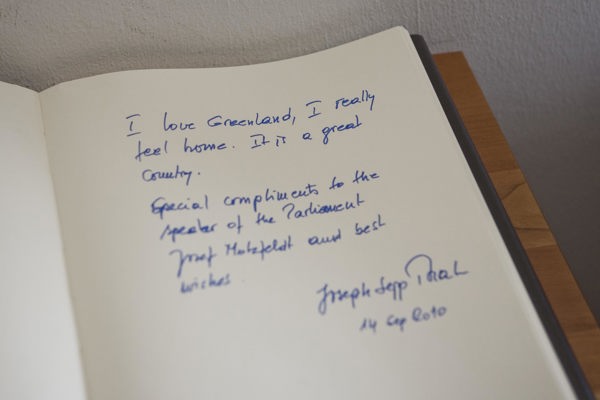 I love Greenland, I really
feel home. It is a great
country.
Special compliments to the
speaker of the Parliament
Josef Motzfeldt and best
wishes.
Joseph Sepp
14 Sep 2010